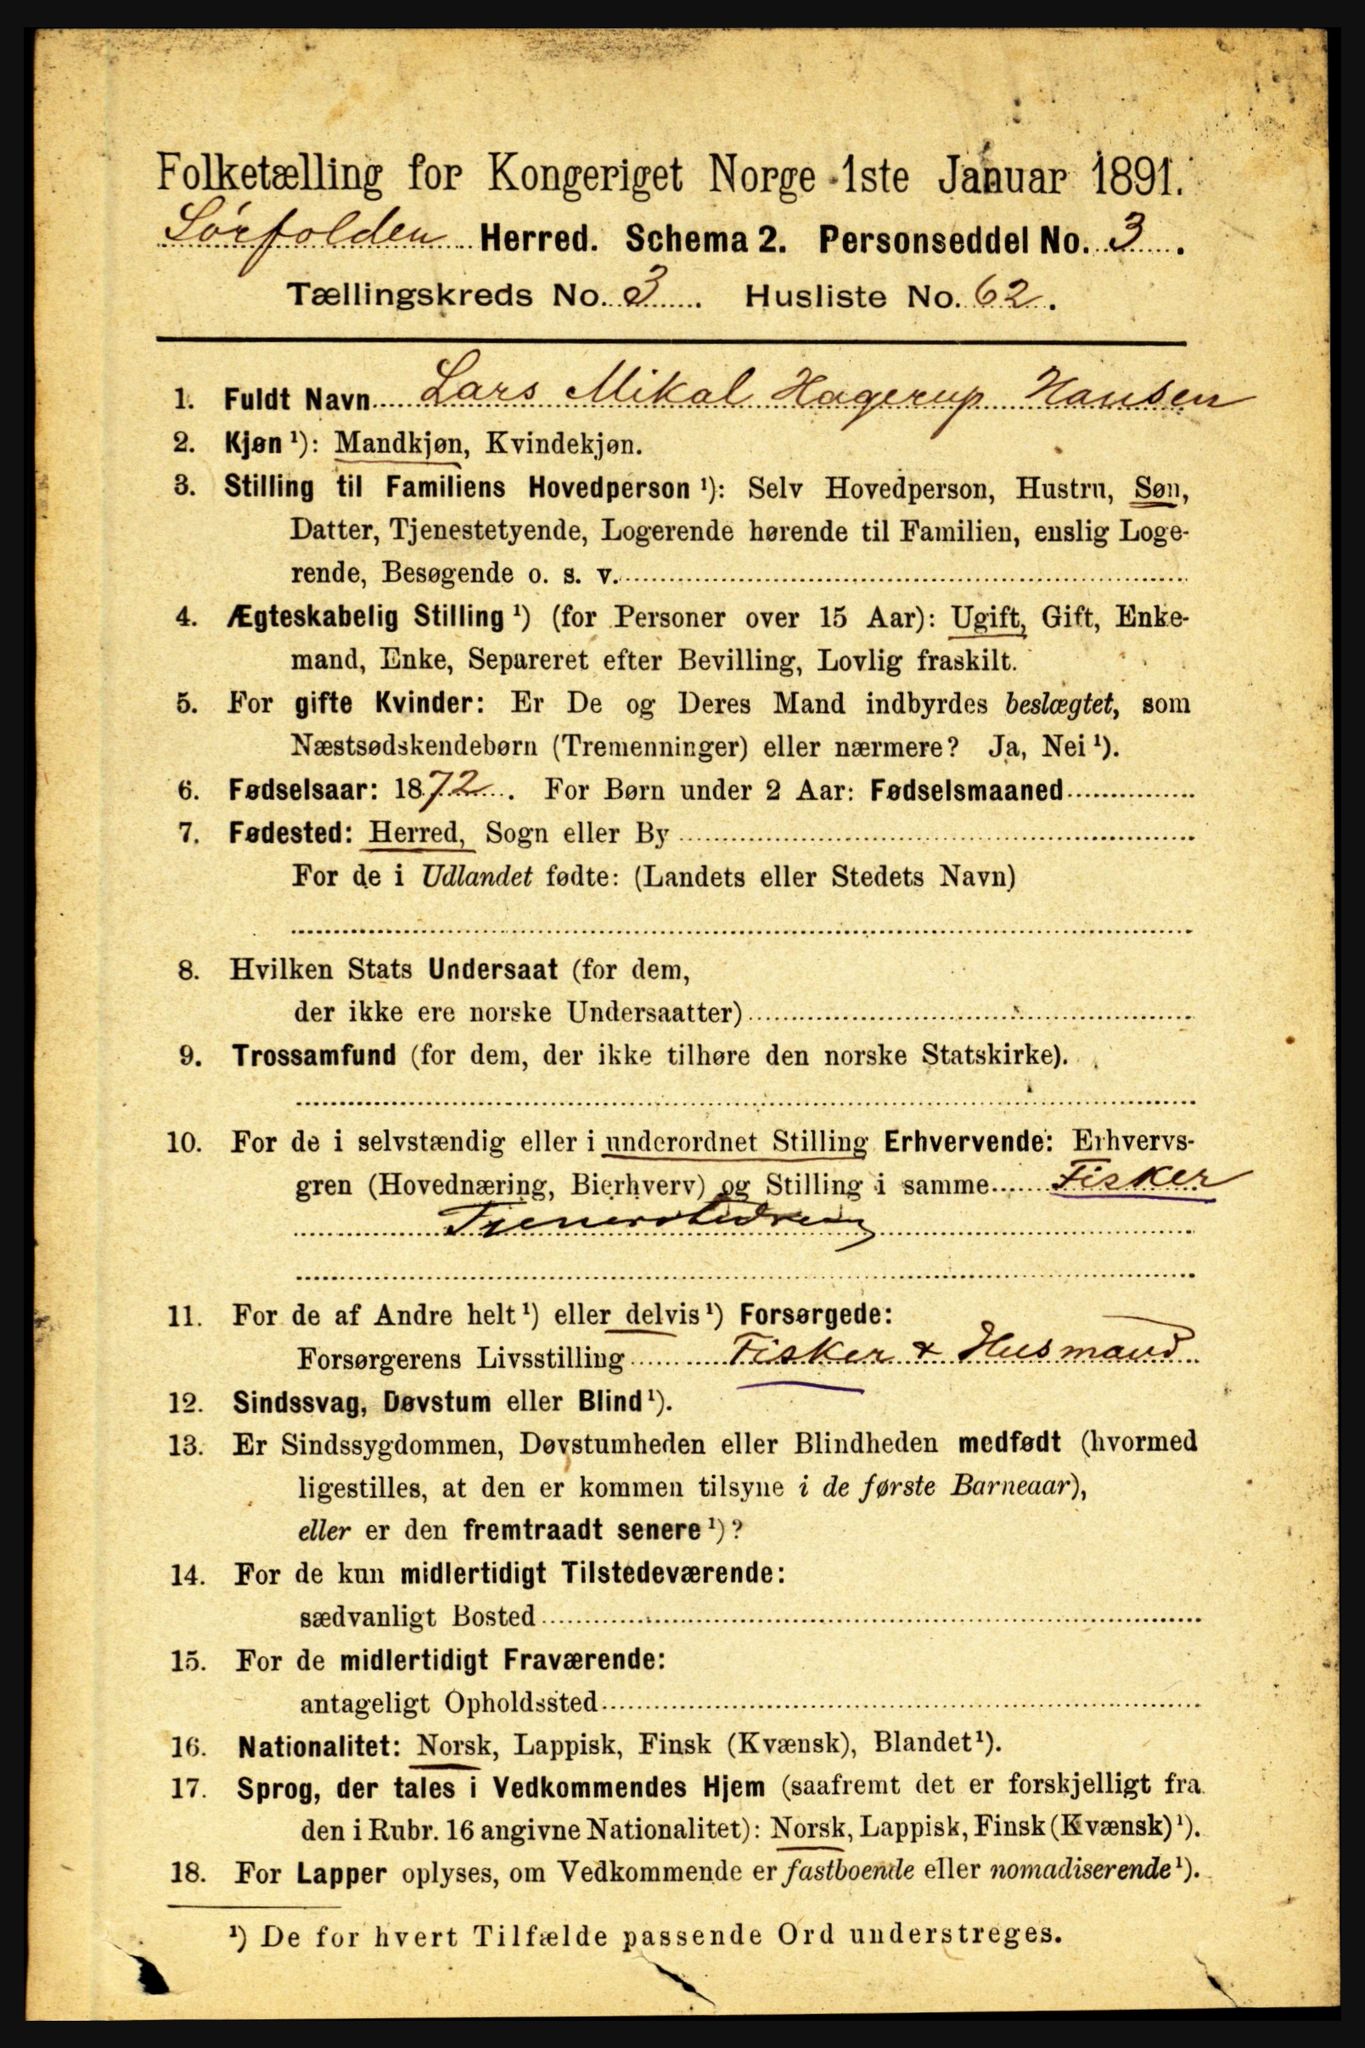 Folketælling for Kongeriget Norge 1ste Januar 1891.
Sörfolden Herred. Schema 2. Personseddel No. 3.
Tællingskreds No. 3. Husliste No. 62.
1. Fuldt Navn Lars Mikal Hagerup Hansen
2. Kjøn ¹): Mandkjøn, Kvindekjøn.
3. Stilling til Familiens Hovedperson ¹): Selv Hovedperson, Hustru, Søn,
Datter, Tjenestetyende, Logerende hørende til Familien, enslig Loge-
rende, Besøgende o. s. v.
4. Ægteskabelig Stilling ¹) (for Personer over 15 Aar): Ugift, Gift, Enke-
mand, Enke, Separeret efter Bevilling, Lovlig fraskilt.
5. For gifte Kvinder: Er De og Deres Mand indbyrdes beslægtet, som
Næstsødskendebørn (Tremenninger) eller nærmere? Ja, Nei ¹).
6. Fødselsaar: 1872. For Børn under 2 Aar: Fødselsmaaned
7. Fødested: Herred, Sogn eller By
For de i Udlandet fødte: (Landets eller Stedets Navn)
8. Hvilken Stats Undersaat (for dem,
der ikke ere norske Undersaatter)
9. Trossamfund (for dem, der ikke tilhøre den norske Statskirke).
10. For de i selvstændig eller i underordnet Stilling Erhvervende: Erhvervs-
gren (Hovednæring, Bierhverv) og Stilling i samme Fisker
11. For de af Andre helt ¹) eller delvis ¹) Forsørgede:
Forsørgerens Livsstilling Fisker + Husmand
12. Sindssvag, Døvstum eller Blind ¹).
13. Er Sindssygdommen, Døvstumheden eller Blindheden medfødt (hvormed
ligestilles, at den er kommen tilsyne i de første Barneaar),
eller er den fremtraadt senere ¹)?
14. For de kun midlertidigt Tilstedeværende:
sædvanligt Bosted
15. For de midlertidigt Fraværende:
antageligt Opholdssted
16. Nationalitet: Norsk, Lappisk, Finsk (Kvænsk), Blandet ¹).
17. Sprog, der tales i Vedkommendes Hjem (saafremt det er forskjelligt fra
den i Rubr. 16 angivne Nationalitet): Norsk, Lappisk, Finsk (Kvænsk) ¹).
18. For Lapper oplyses, om Vedkommende er fastboende eller nomadiserende ¹).
¹) De for hvert Tilfælde passende Ord understreges.